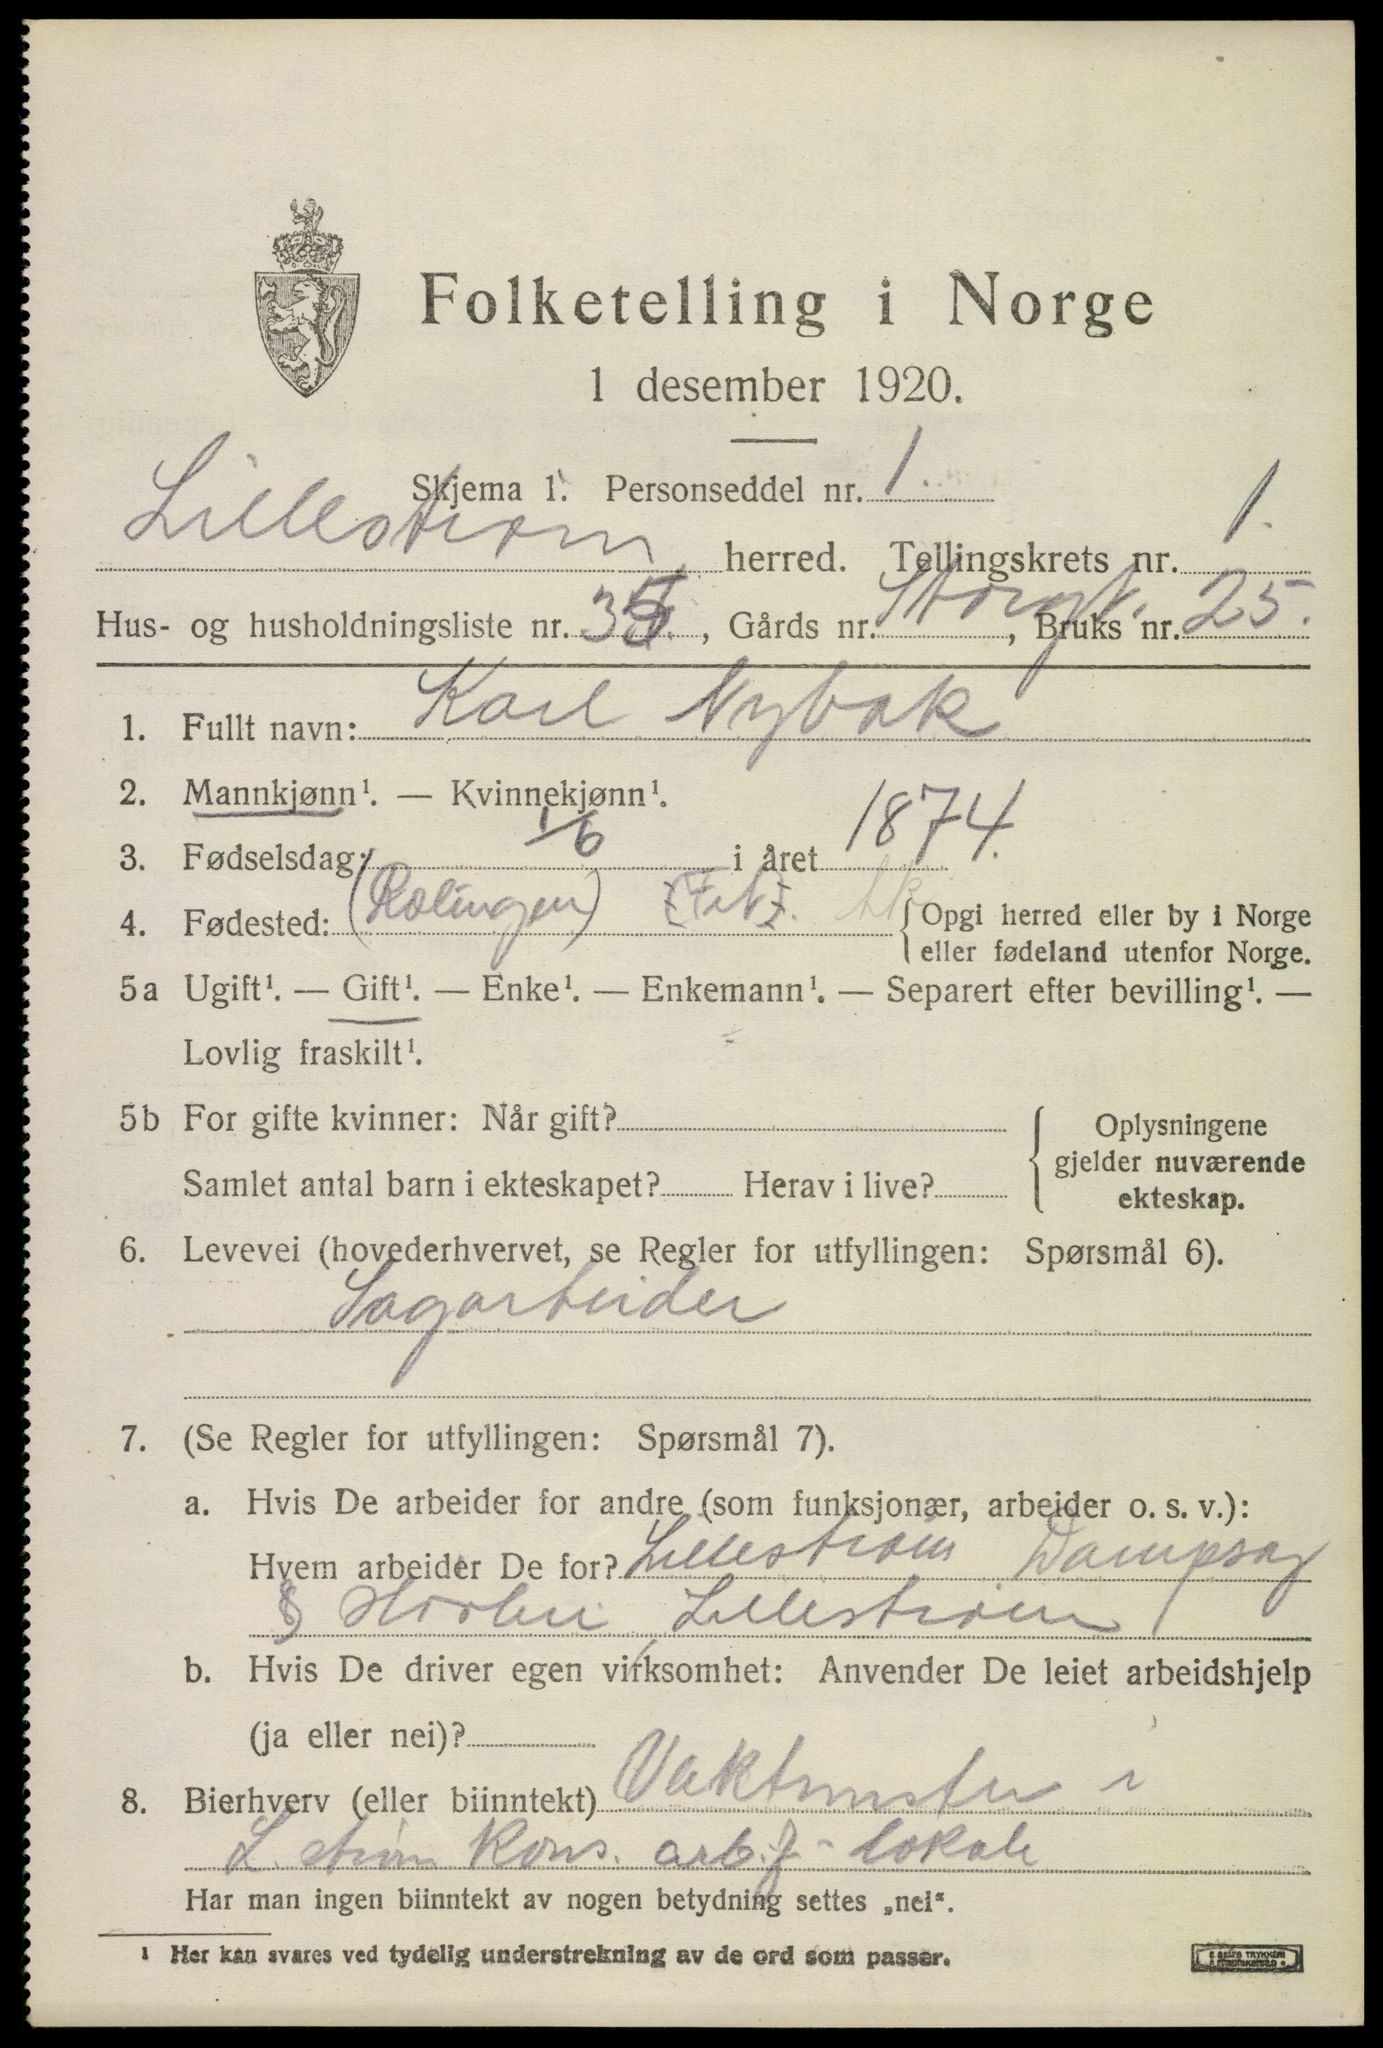 Folketelling i Norge
1 desember 1920.
Skjema 1. Personseddel nr. 1.
Lillestrøm herred. Tellingskrets nr. 1.
Hus- og husholdningsliste nr. 35., Gårds nr. Storgt., Bruks nr. 25.
1. Fullt navn: Karl Nybak
2. Mannkjønn¹. — Kvinnekjønn¹.
3. Fødselsdag: 1/6 i året 1874.
4. Fødested: (Rælingen) {Opgi herred eller by i Norge
eller fødeland utenfor Norge.
5a Ugift¹. — Gift¹. — Enke¹. — Enkemann¹. — Separert efter bevilling¹. —
Lovlig fraskilt¹.
5b For gifte kvinner: Når gift? Oplysningene
gjelder nuværende
Samlet antal barn i ekteskapet? Herav i live? ekteskap.
6. Levevei (hovederhvervet, se Regler for utfyllingen: Spørsmål 6).
Sagarbeider
7. (Se Regler for utfyllingen: Spørsmål 7).
a. Hvis De arbeider for andre (som funksjonær, arbeider o. s. v.):
Hvem arbeider De for? Lillestrøm Dampsag
& Høvleri, Lillestrøm
b. Hvis De driver egen virksomhet: Anvender De leiet arbeidshjelp
(ja eller nei)?
8. Bierhverv (eller biinntekt) Vaktmester i
L. strøm Kons. arb.f. lokale
Har man ingen biinntekt av nogen betydning settes „nei“.
¹ Her kan svares ved tydelig understrekning av de ord som passer.